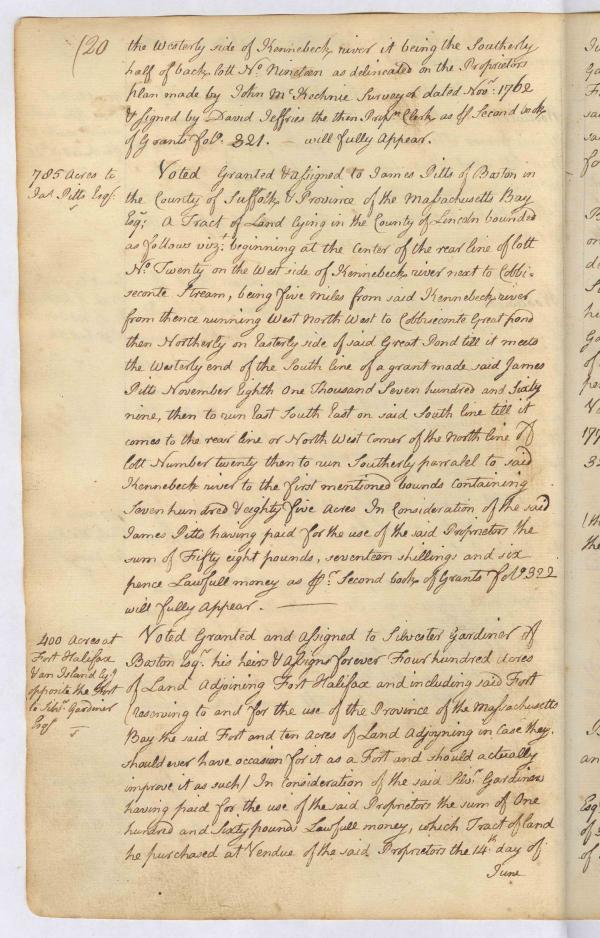 (20
the Westerly side of Kennebeck river it being the Southerly
half of back lott No. Nineteen as delineated on the Proprietors
plan made by John McKechnie Surveyor dated Novr. 1762
& signed by David Jeffries the then Proprs. Clerk as pr Second book
of Grants folo. 321. — will fully Appear.
785 Acres to
Jas. Pitts Esqr.
Voted Granted & assigned to James Pitts of Boston in
the County of Suffolk & Province of the Massachusetts Bay
Esqr. A Tract of Land lying in the County of Lincoln bounded
as follows vizt. beginning at the Center of the rear line of lott
No. Twenty on the West side of Kennebeck river next to Cobbi-
seconte Stream, being five miles from said Kennebeck river
from thence running West North West to Cobbiseconte Great pond
then Northerly on Easterly side of said Great Pond till it meets
the Westerly end of the South line of a grant made said James
Pitts November Eighth One Thousand Seven hundred and Sixty
nine, then to run East South East on said South line till it
comes to the rear line or North West Corner of the North line of
lott Number twenty then to run Southerly parralel to said
Kennebeck river to the first mentioned bounds containing
Seven hundred & eighty five Acres In Consideration of the said
James Pitts having paid for the use of the said Proprietors the
sum of Fifty eight pounds, seventeen shillings and six
pence Lawfull money as pr. Second book of Grants folo. 322
will fully Appear. —
400 Acres at
Fort Halifax
& an Island lyg.
opposite the Fort
to Silvr. Gardiner
Esqr.
Voted Granted and assigned to Silvester Gardiner of
Boston Esqr. his heirs & Assigns forever Four hundred Acres
of Land Adjoining Fort Halifax and including said Fort
(reserving to and for the use of the Province of the Massachusetts
Bay the said Fort and ten Acres of Land Adjoyning in Case they
should ever have occasion for it as a Fort and should actually
improve it as such) In Consideration of the said Silvr. Gardiners
having paid for the use of the said Proprietors the sum of One
hundred and Sixty pounds Lawfull money, which Tract of land
he purchased at Vendue of the said Proprietors the 14th. day of
June